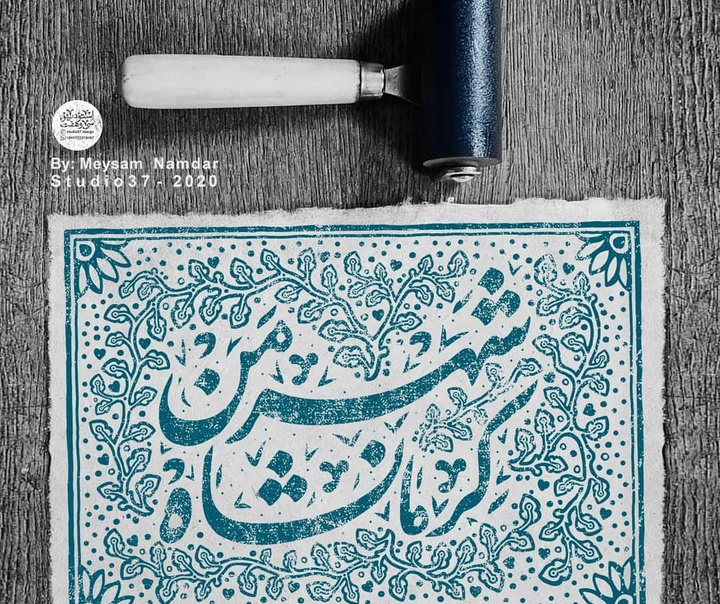 By: Meysam Namdar
Studio37- 2020
شهر من
کرمانشاه